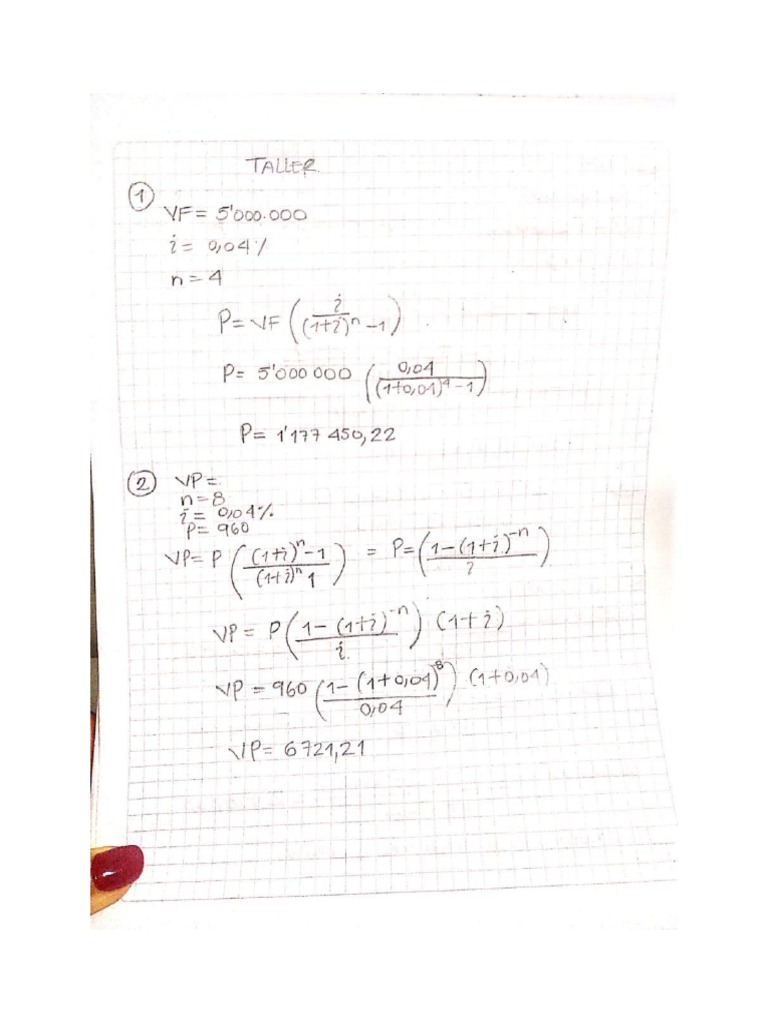 TALLER
①
VF = 5'000.000
i = 0,04%
n = 4
P = VF (i / ((1+i)^n - 1))
P = 5'000 000 (0,04 / ((1+0,04)^4 - 1))
P = 1'177 450,22
② VP =
n = 8
i = 0,04%
P = 960
VP = P (((1+i)^n - 1) / ((1+i)^n 1)) = P = ((1 - (1+i)^-n) / i)
VP = P ((1 - (1+i)^-n) / i) (1+i)
VP = 960 ((1 - (1+0,04)^8) / 0,04) (1+0,04)
VP = 6721,21